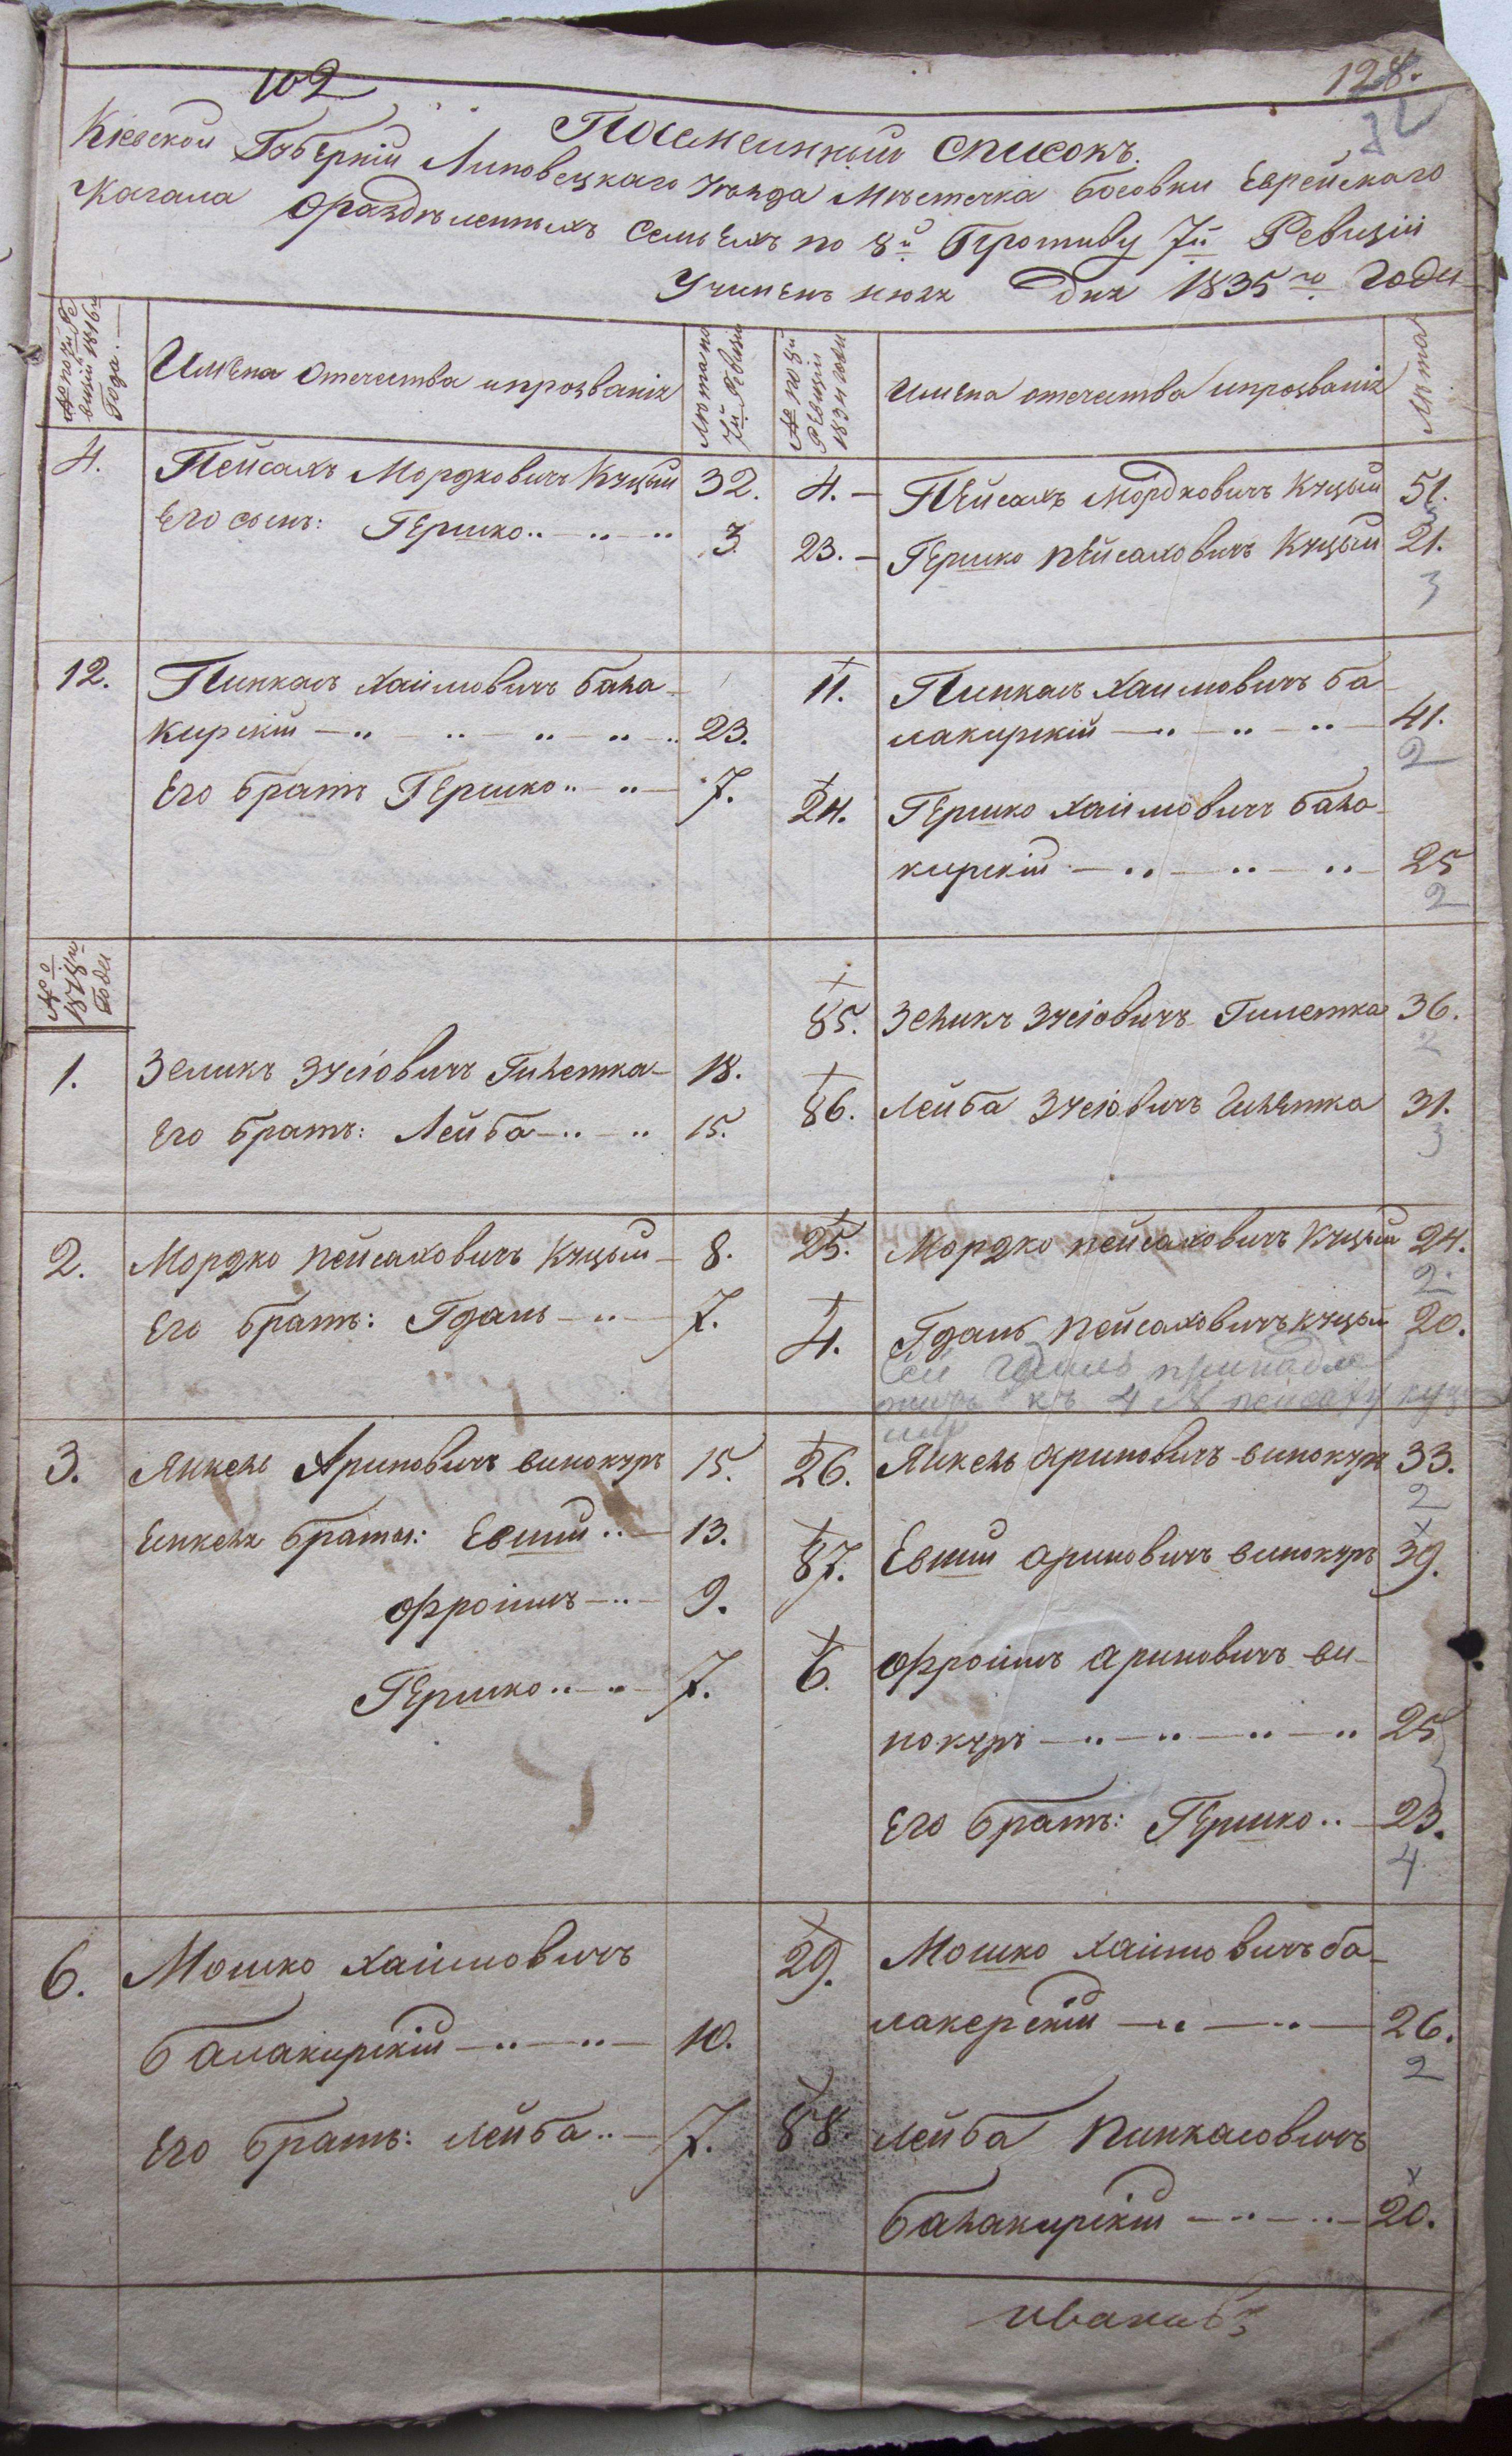 102
128.
Поименный списокъ.
Кіевской Губерніи Липовецкаго уѣзда Мѣстечка босовки Еврейскаго
Кагала ораздѣленныхъ семьяхъ по 8й Противу 7й Ревизіи
Учиненъ июля дня 1835го Года
№ по 7й Ре
визіи 1816го
Года.
Имена отечества ипрозванія
Лѣта по
7й Ревизіи
№ по 8й
Ревизіи
1834 года
Имена отечества ипрозванія
Лѣта
4. Пейсахъ Мордковичъ Куцый 32. 4. Пейсахъ Мордковичъ Куцый 51.
Его сынъ: Гершко 3 23. Гершко Пейсаховичъ Куцый 21.
3
12. Пинкасъ Хаимовичъ бала- 11. Пинкасъ Хаимовичъ ба-
кирскій 23. лакирскій 41.
2
Его братъ Гершко 7. 24. Гершко Хаимовичъ бала-
кирскій 25
2
№
1818го
Года
85. Зеликъ Зусіовичъ Гилетка 36.
2
1. Зеликъ Зусіовичъ Гилетка 18.
86. Лейба Зусіовичъ Гилетка 31.
3
Его братъ: Лейба 15.
2. Мордко Пейсаховичъ Куцый 8. 25. Мордко Пейсаховичъ Куцый 24.
2
Его братъ: Гдаль 7. 4. Гдаль Пейсаховичъ куцый 20.
Сей Гдаль принадле
житъ къ 4 № пейсаху куц
3. Янкель Ариновичъ винокуръ 15. 26. Янкель Ариновичъ винокуръ 33.
2
Еинкеля братья: Евши 13. 87. Евши Ариновичъ винокуръ 39.
Фроимъ 9. 6. Фроимъ Ариновичъ ви-
нокуръ 25
Гершко 7.
Его братъ: Гершко 23.
4
6. Мошко Хаимовичъ 29. Мошко Хаимовичъ ба-
балакирскій 10. лакерскій 26.
2
Его братъ: Лейба 7. 88. Лейба Пинкасовичъ
балакирскій 20.